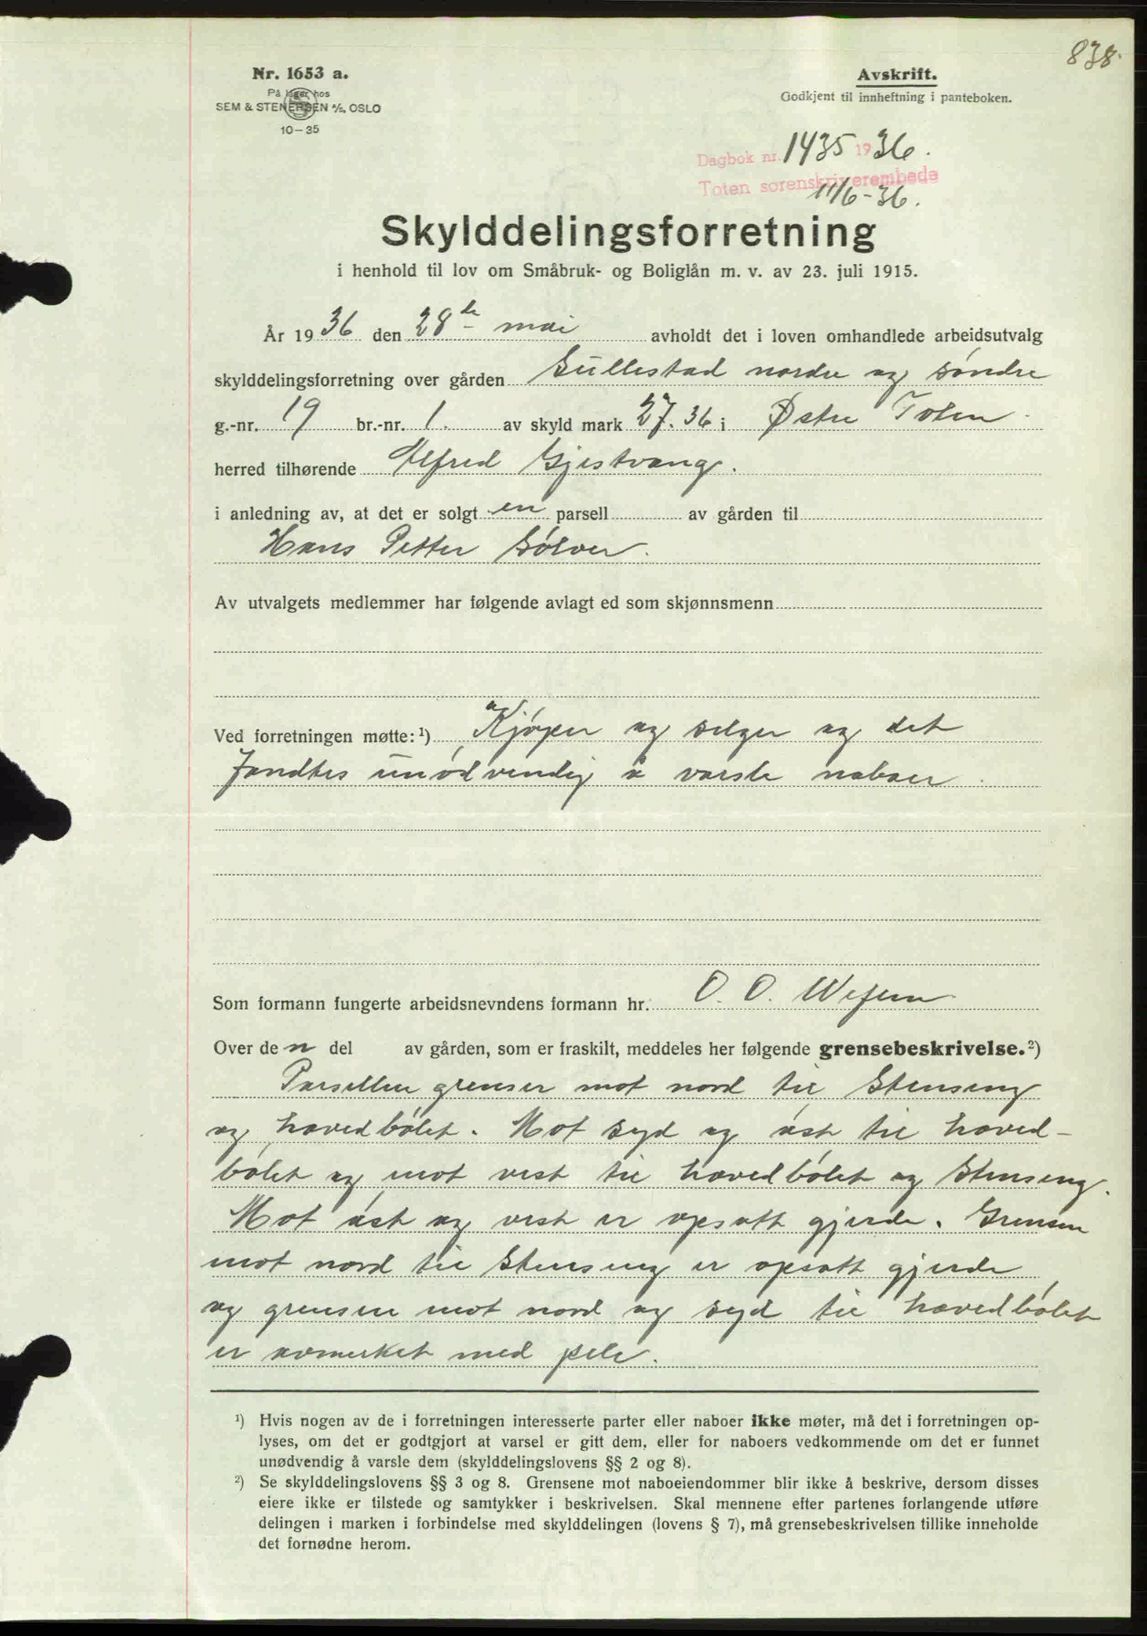 838.
Nr. 1653 a.
På lager hos
SEM & STENERSEN A/S, OSLO
10-35
Avskrift.
Godkjent til innheftning i panteboken.
Dagbok nr. 1435 1936.
Toten sorenskriverembede
11/6-36.
Skylddelingsforretning
i henhold til lov om Småbruk- og Boliglån m. v. av 23. juli 1915.
År 1936 den 28de mai avholdt det i loven omhandlede arbeidsutvalg
skylddelingsforretning over gården Gullestad nordre og søndre
g.-nr. 19 br.-nr. 1. av skyld mark 27.36 i Østre Toten
herred tilhørende Alfred Gjestvang.
i anledning av, at det er solgt en parsell av gården til
Hans Petter Sølver.
Av utvalgets medlemmer har følgende avlagt ed som skjønnsmenn
Ved forretningen møtte: ¹) Kjøper og selger og det
fandtes unødvendig å varsle naboer.
Som formann fungerte arbeidsnevndens formann hr. O. O.
Over den del av gården, som er fraskilt, meddeles her følgende grensebeskrivelse.²)
Parsellen grenser mot nord til Stenseng
og hovedbølet. Mot syd og øst til hoved-
bølet og mot vest til hovedbølet og Stenseng.
Mot øst og vest er opsatt gjerde. Grensen
mot nord til Stenseng er opsatt gjerde
og grensen mot nord og syd til hovedbølet
er avmerket med pele.
¹) Hvis nogen av de i forretningen interesserte parter eller naboer ikke møter, må det i forretningen op-
lyses, om det er godtgjort at varsel er gitt dem, eller for naboers vedkommende om det er funnet
unødvendig å varsle dem (skylddelingslovens §§ 2 og 8).
²) Se skylddelingslovens §§ 3 og 8. Grensene mot naboeiendommer blir ikke å beskrive, dersom disses
eiere ikke er tilstede og samtykker i beskrivelsen. Skal mennene efter partenes forlangende utføre
delingen i marken i forbindelse med skylddelingen (lovens § 7), må grensebeskrivelsen tillike inneholde
det fornødne herom.